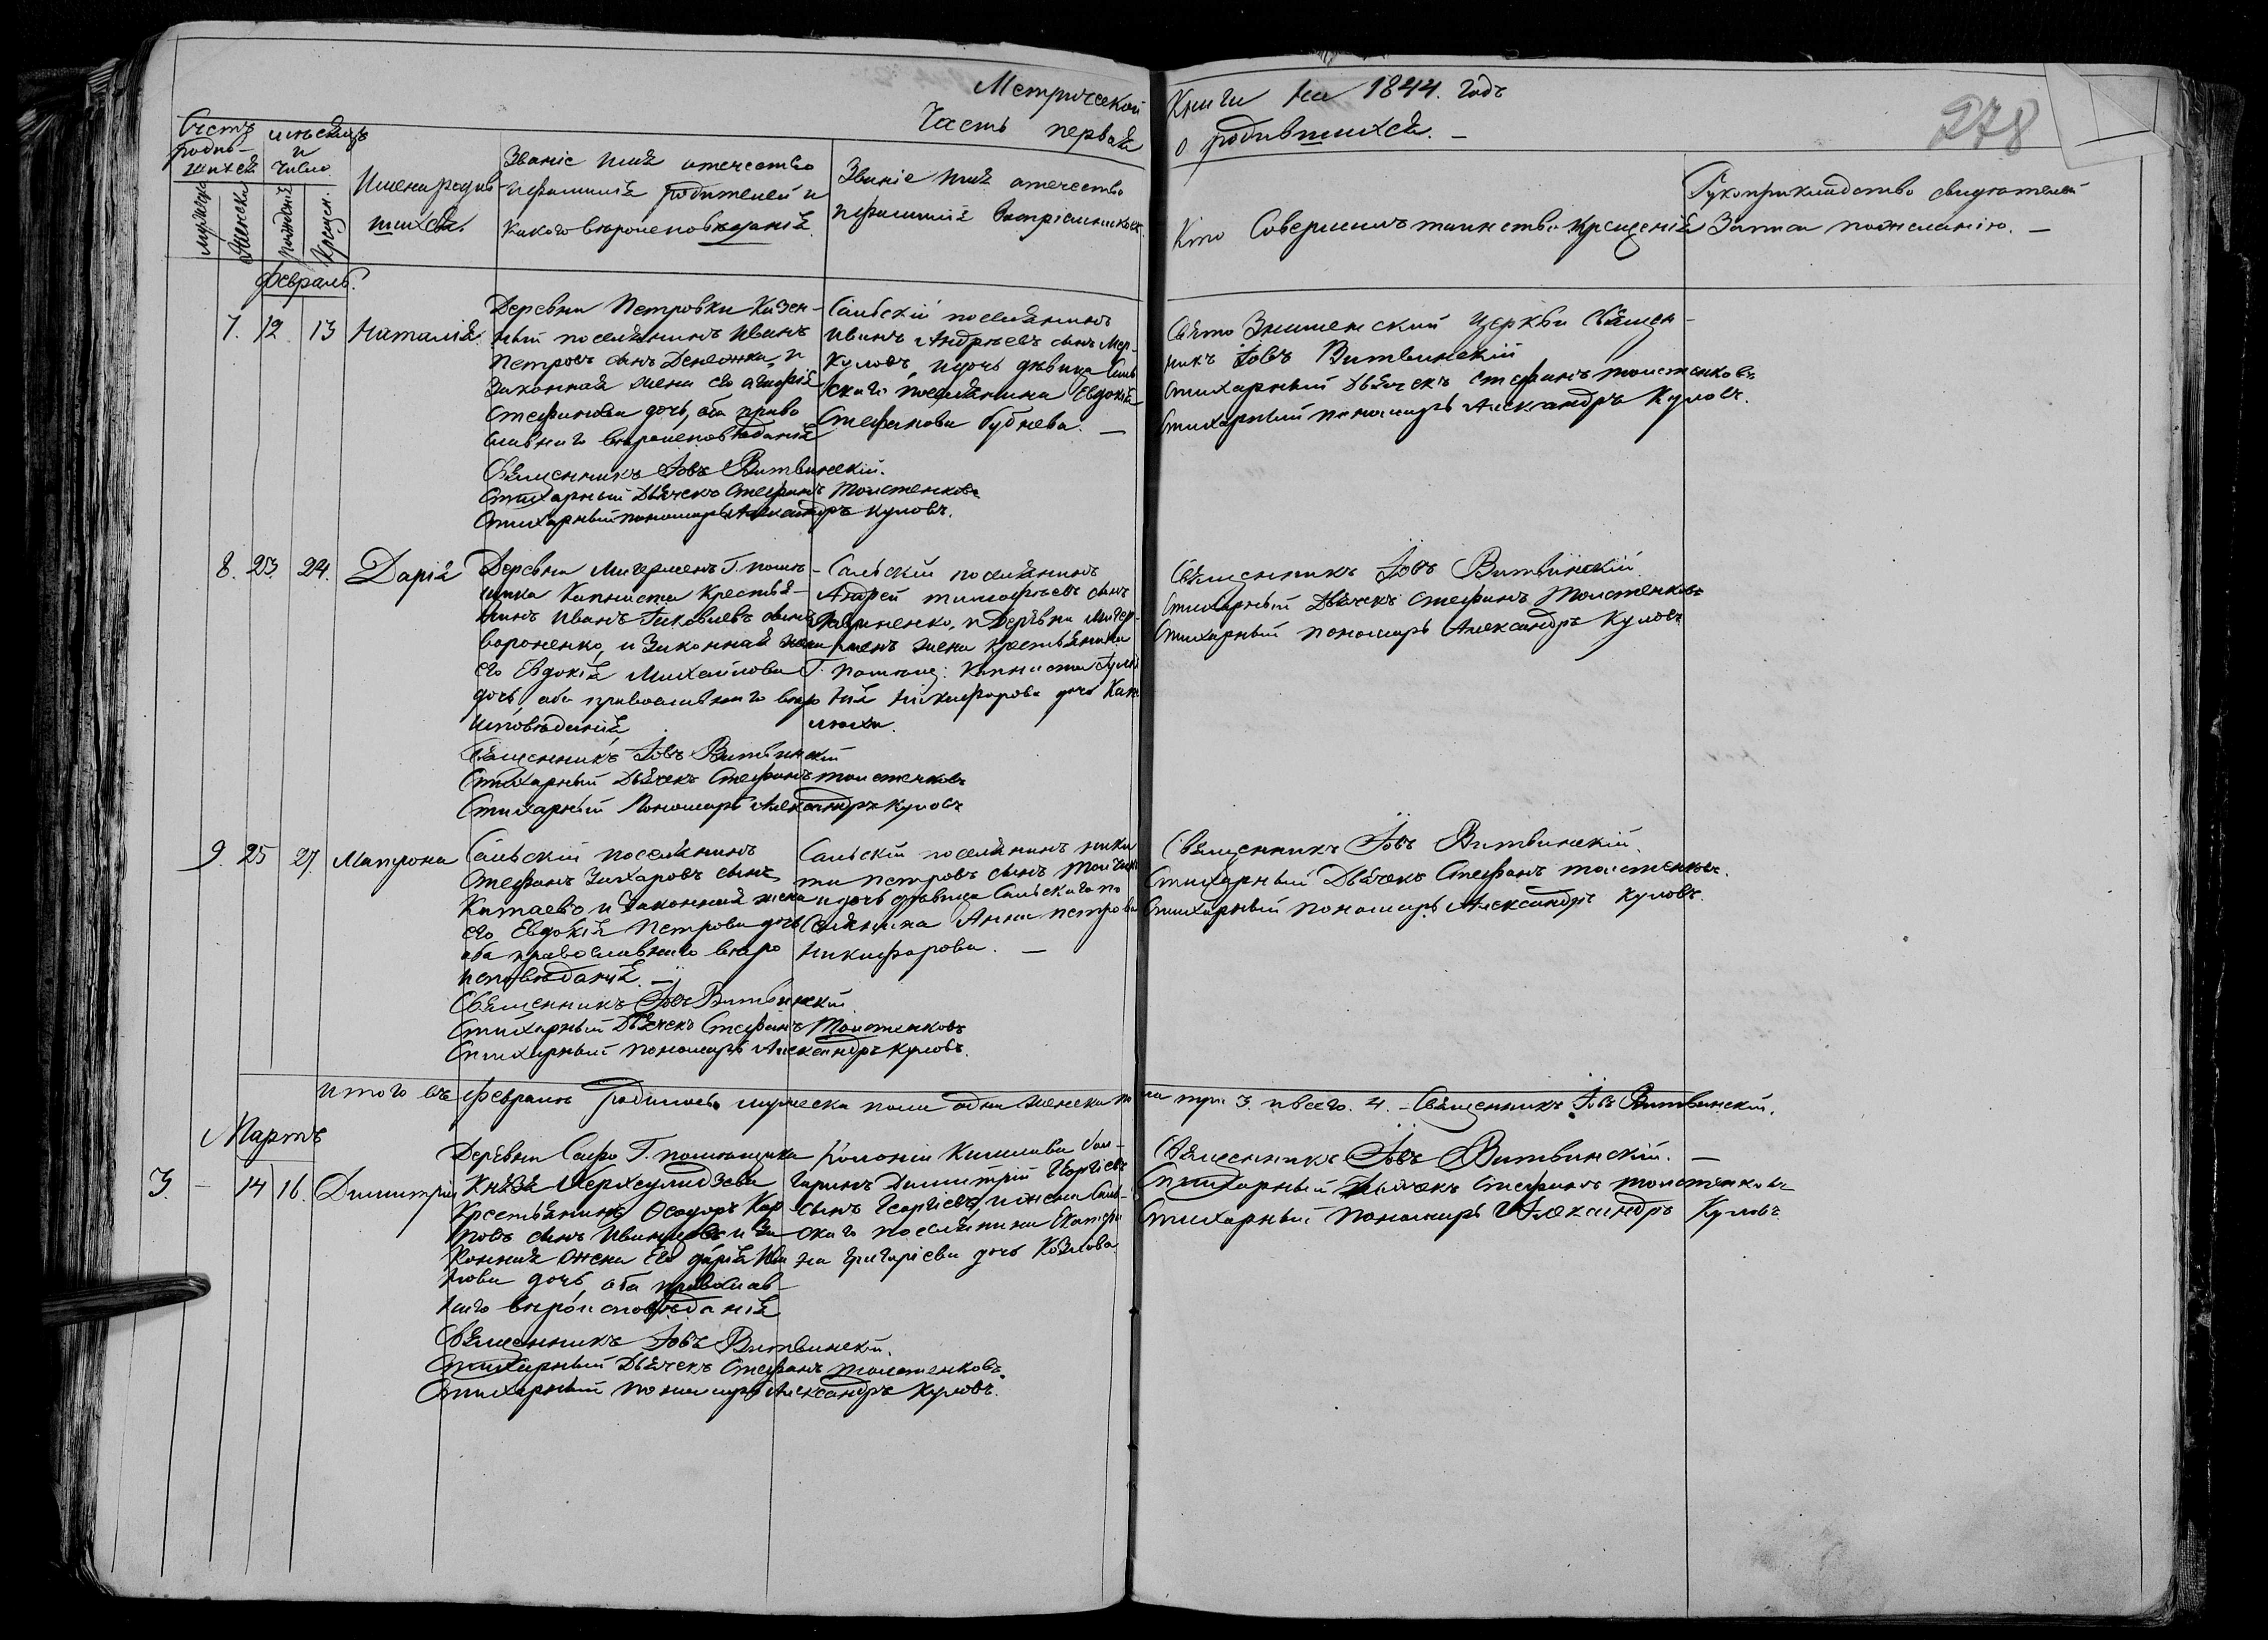 Метрической
Часть первая
Книги на 1844. годъ
о родившихся. —
278
Счетъ родив-шихся
мѣсяцъ и число
мужеска
женска
рожденія
крещен.
Имена родив-
шихся.
Званіе имя отечество
и фамилія родителей и
какого вѣроисповѣданія.
Званіе имя отечество
и фамилія воспріемниковъ.
Кто Совершилъ таинство крещенія
Рукоприкладство свидѣтелей
записи по желанію. —
Февраль.
7. 12. 13 Наталія.
Деревни Петровки Казен-
ный поселянинъ Иванъ
Петровъ сынъ и
законная жена его
Стефанова дочь, оба право
славнаго вѣроисповѣданія
Священникъ Іовъ Витвинскій.
Стихарный Дьячекъ Стефанъ Толстенковъ
Стихарный пономарь Александръ Куловъ.
Сальскій поселянинъ
Иванъ Андреевъ сынъ Мер-
куловъ, и дочь дѣвица Саль
скаго поселянина Евдокія
Стефанова Губнева. —
Свято Знаменской церкви Священ-
никъ Іовъ Витвинскій
Стихарный Дьячекъ Стефанъ Толстенковъ
Стихарный пономарь Александръ Куловъ.
8. 23. 24. Дарія
Деревни Мигермень Г. помѣ-
щика Капниста Крестья-
нинъ Иванъ Яковлевъ сынъ
вороненко, и Законная жена
его Евдокія Михайлова
дочь, оба православнаго вѣро
исповѣданія
Священникъ Іовъ Витвинскій
Стихарный Дьячекъ Стефанъ Толстенковъ
Стихарный Пономарь Александръ Куловъ
Сальскій поселянинъ
Андрей тимофѣевъ сынъ
Гавриненко, и Деревни Мигер-
мень жена крестьянина
Г. помѣщ: Капниста Іулі
нія Никифорова дочь
Священникъ Іовъ Витвинскій
Стихарный Дьячекъ Стефанъ Толстенковъ
Стихарный пономарь Александръ Куловъ
9. 25 27. Матрона
Сальскій поселянинъ
Стефанъ Захаровъ сынъ
Китаевъ, и Законная жена
его Евдокія Петрова дочь
оба православнаго вѣро
исповѣданія. —
Священникъ Іовъ Витвинскій
Стихарный Дьячекъ Стефанъ Толстенковъ
Стихарный пономарь Александръ Куловъ.
Сальскій поселянинъ Ники
та Петровъ сынъ
и дочь дѣвица Сальскаго по
селянина Анна петрова
Никифорова. —
Священникъ Іовъ Витвинскій.
Стихарный Дьячекъ Стефанъ толстенковъ.
Стихарный пономарь Александръ Куловъ.
Итого въ февралѣ родилось мужеска пола одна женска по ла три 3. и всего. 4. - Священникъ Іовъ Витвинскій.
Мартъ
3. — 14 16. Димитрій
Деревни Сапро Г. помѣщика
Князя Херхеулидзева
Крестьянинъ Ѳеодоръ Кар
повъ сынъ Иванцовъ и за
конная жена Его дарія Ива
нова дочь, оба православ
наго вѣроисповѣданія
Священникъ Іовъ Витвинскій.
Стихарный Дьячекъ Стефанъ Толстенковъ.
Стихарный пономарь Александръ Куловъ.
Колоніи Кишлава бол-
гаринъ Димитрій Георгіевъ
сынъ Георгіевъ, и жена Саль-
скаго поселянина Екатери
на Григоріева дочь Козлова
Священникъ Іовъ Витвинскій. —
Стихарный Дьячекъ Стефанъ толстенковъ
Стихарный пономарь Александръ Куловъ